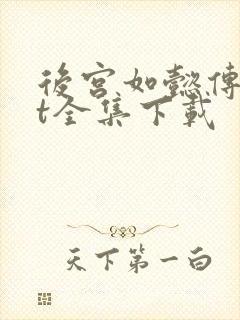 後宮如懿傳
t全集下載
天下第一白